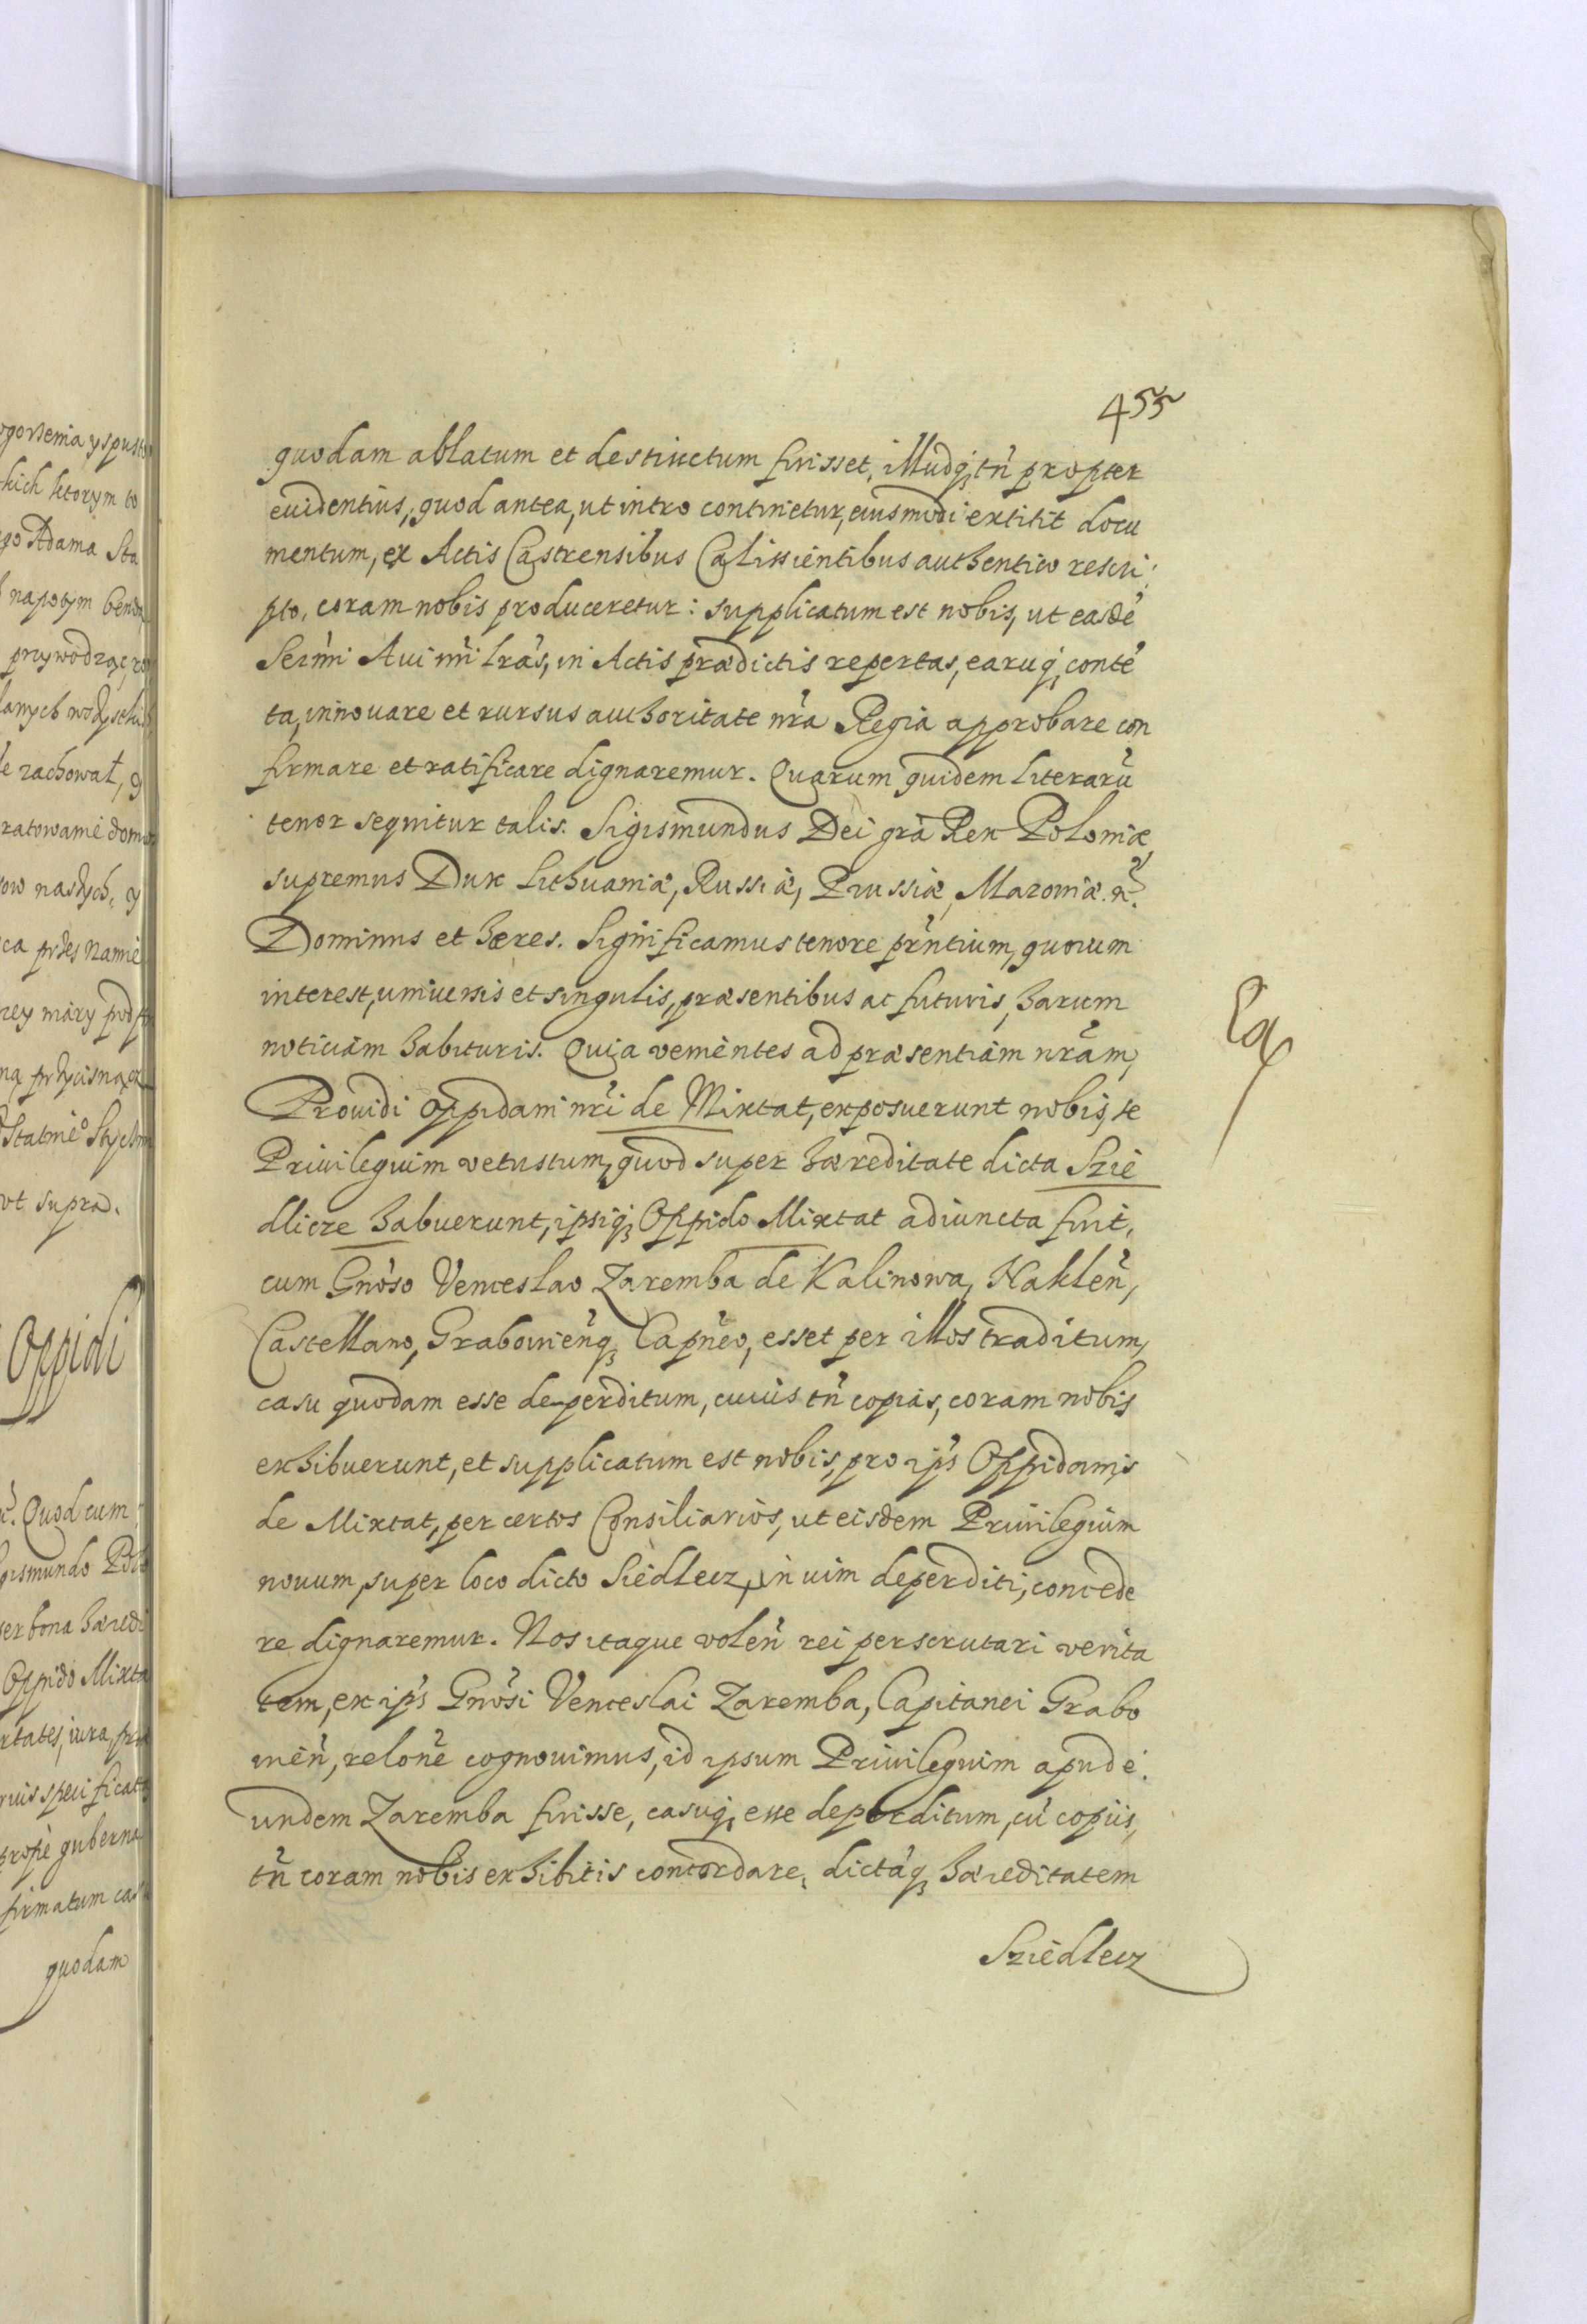 455
quodam ablatum et destructum fuisset, illudq; tn̄ propter
euidentius, quod antea, ut intro continetur, eiusmodi extitit docu
mentum, ex Actis Castrensibus Calissientibus authentico rescri:
pto, coram nobis produceretur: supplicatum est nobis, ut easdē
Sermi Aui nr̄i lrās, in Actis prædictis repertas, earuq; contē
ta, innouare et rursus authoritate nr̄a Regia approbare con
firmare et ratificare dignaremur. Quarum quidem Literarū
tenor sequitur talis. Sigismundus Dei grā Rex Poloniæ
supremus Dux Lithuaniæ, Russiæ, Prussiæ, Mazoviæ &.
Dominus et hæres. Significamus tenore pr̄ntium, quorum
interest, uniuersis et singulis, præsentibus ac futuris, harum
noticiam habituris. Quia venientes ad præsentiam nrām,
Prouidi oppidani nr̄i de Mixtat, exposuerunt nobis, se
Priuilegium vetustum, quod super hæreditate dicta Szie
dlicze habuerunt, ipsiq; Oppido Mixtat adiuncta fuit,
cum Gnōso Venceslao Zaremba de Kalinowa, Naklēn,
Castellano, Grabouienq; Capn̄eo, esset per illos traditum,
casu quodam esse deperditum, cuius tn̄ copias, coram nobis
exhibuerunt, et supplicatum est nobis, pro ip̄s Oppidanis
de Mixtat, per certos Consiliarios, ut eisdem Priuilegium
nouum, super loco dicto Siedlecz, in uim deperditi, concede
re dignaremur. Nos itaque volēn rei perscrutari verita
tem, ex ip̄s Gnōsi Venceslai Zaremba, Capitanei Grabo
uiēn, relōne cognouimus, id ipsum Priuilegium apud e:
undem Zaremba fuisse, casuq; esse deperditum, cū copiis,
tn̄ coram nobis exhibitis concordare, dictāq; hæreditatem
Sziedlecz